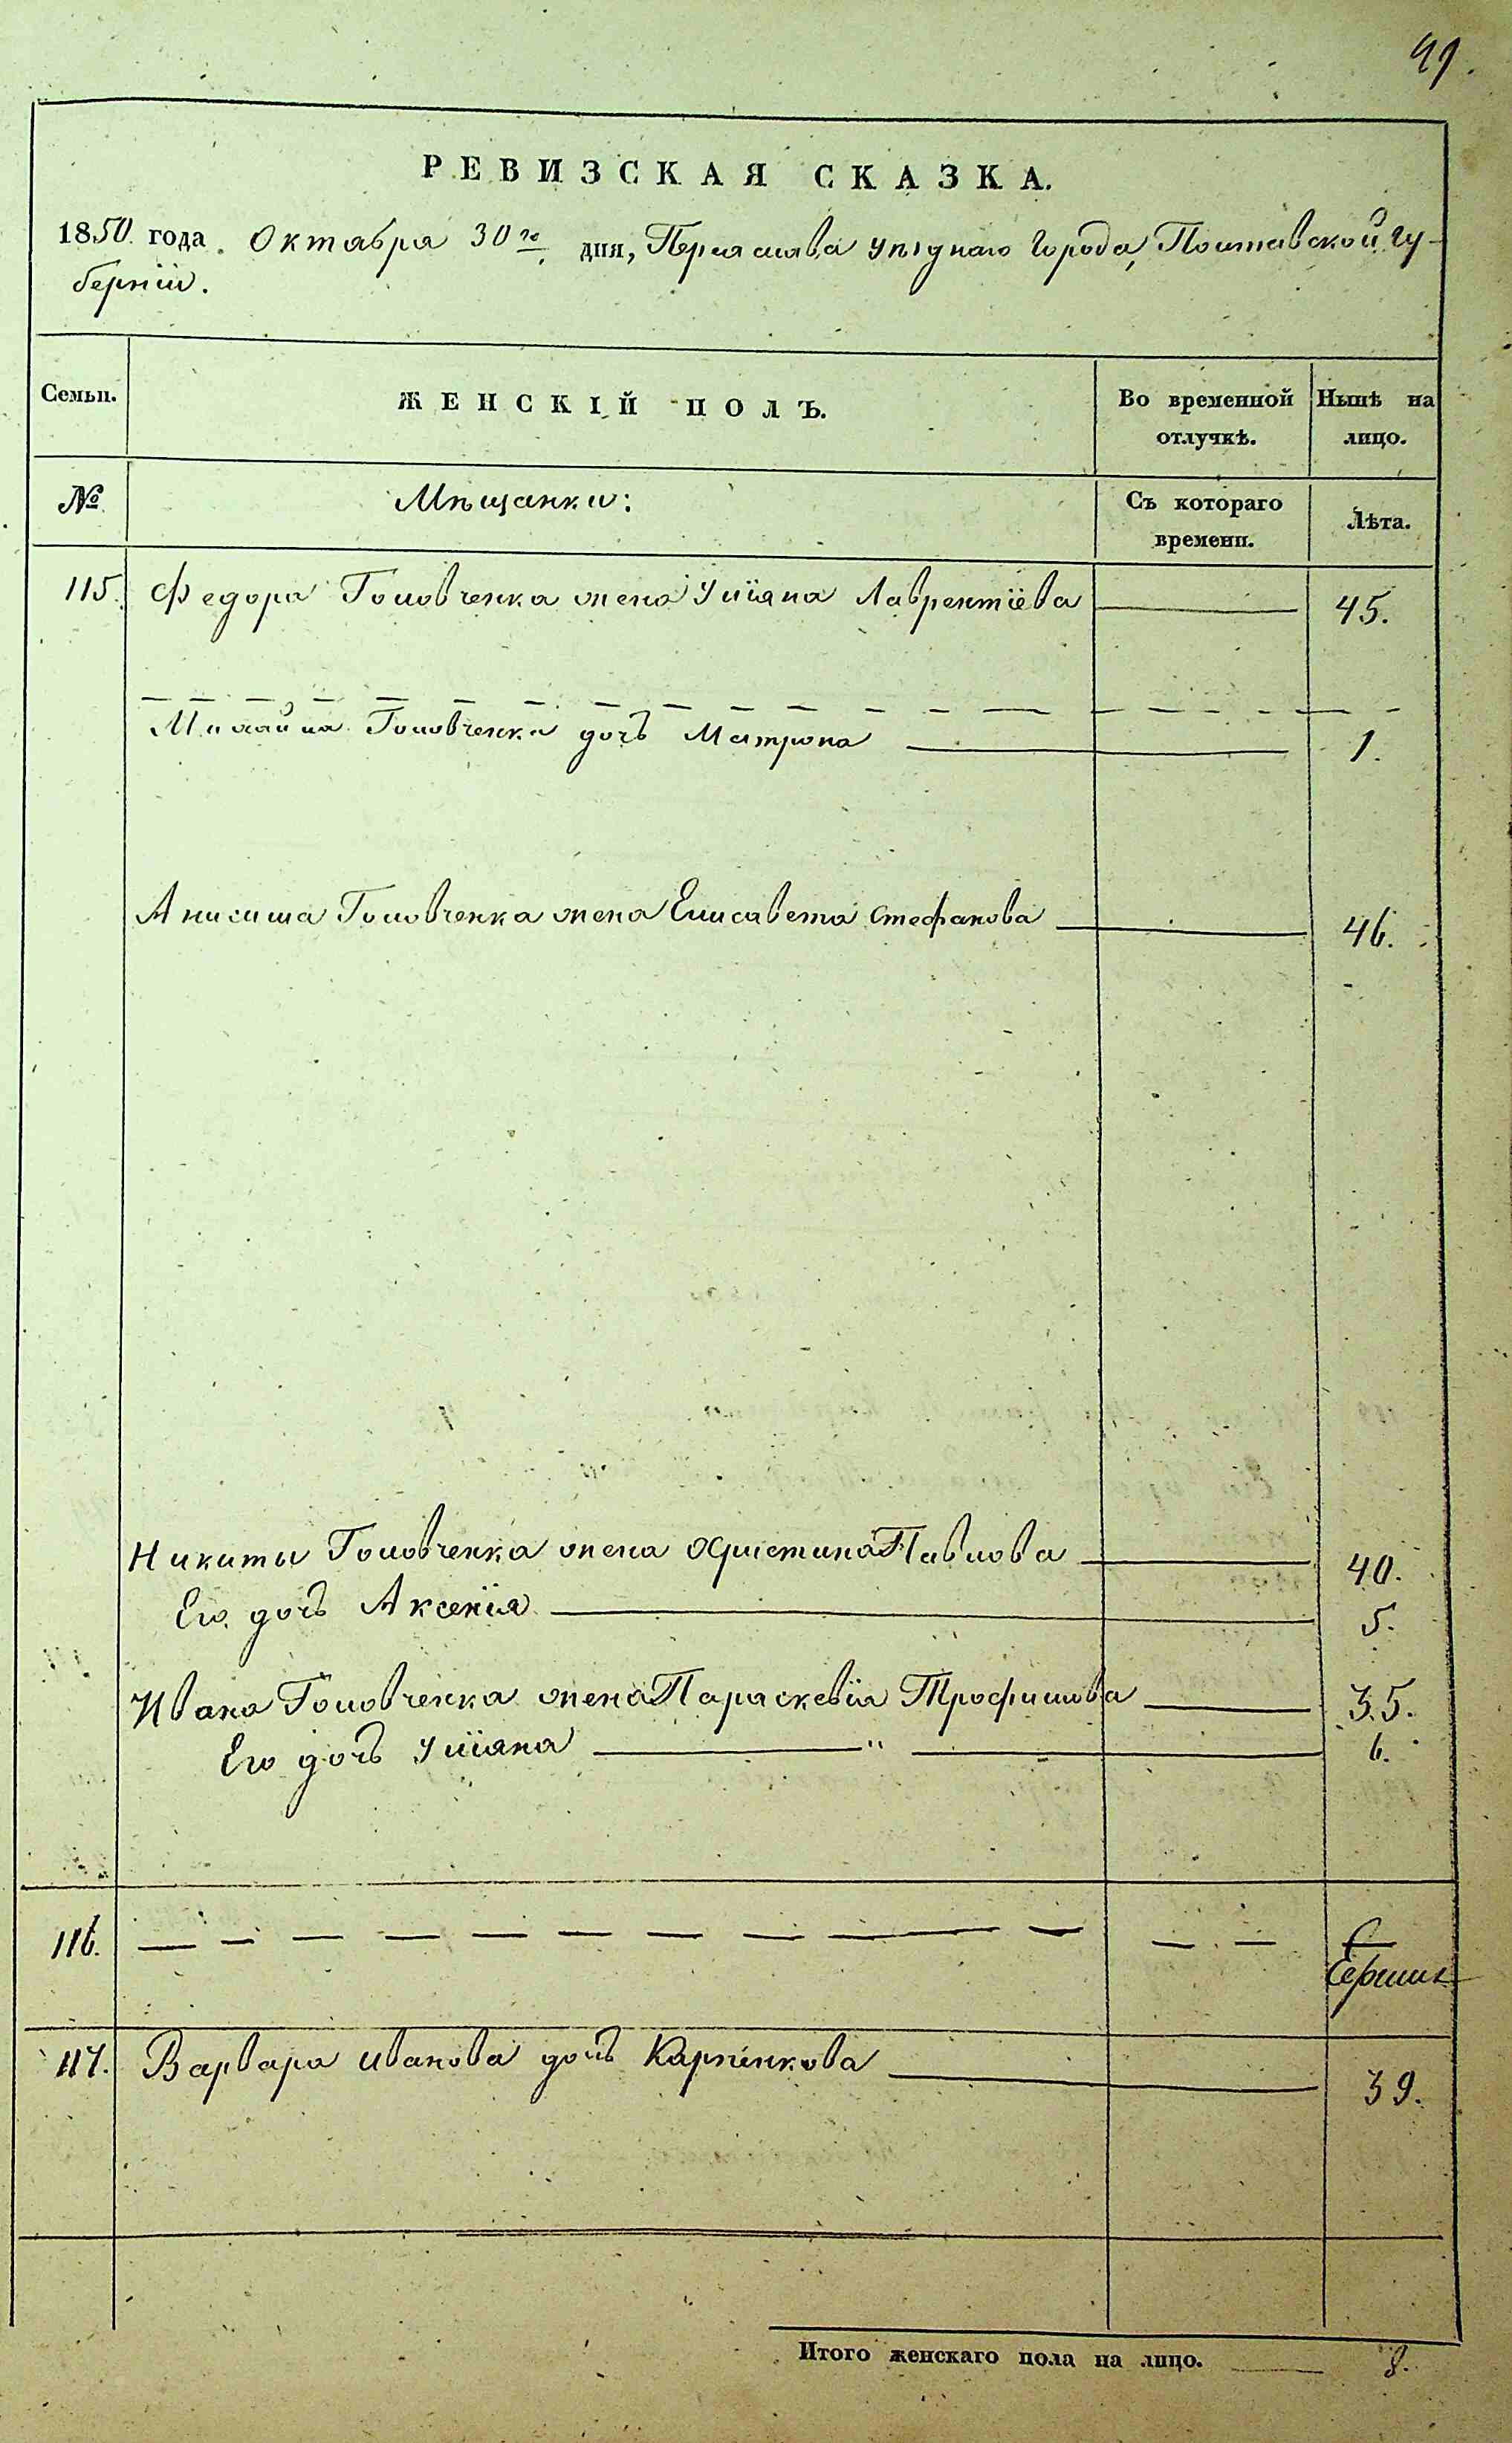 91.
РЕВИЗСКАЯ СКАЗКА.
1850 года Октября 30го дня, Переяслава уѣзднаго города, Полтавской гу-
берніи.
Семьи.
ЖЕНСКІЙ ПОЛЪ.
Во временной отлучкѣ.
Нынѣ на лицо.
№
Мѣщанки:
Съ котораго времени.
Лѣта.
115. Федора Головченка жена Уліяна Лаврентіева 45.
Михайла Головченка дочь Матрона 1.
Анисима Головченка жена Елисавета Стефанова 46.
Никиты Головченка жена Христина Павлова 40.
Его дочь Аксенія 5.
Ивана Головченка жена Параскевія Трофимова 35.
Его дочь Уліяна " 6.
116.
117. Варвара Иванова дочь Карпенкова 39.
Итого женскаго пола на лицо. 8.